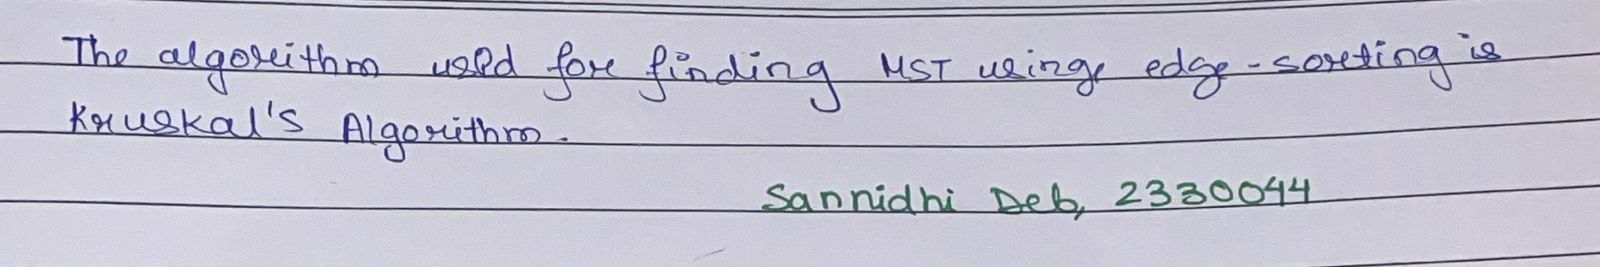 The algorithm used for finding MST using edge-sorting is
Kruskal's Algorithm.
Sannidhi Deb, 2330044